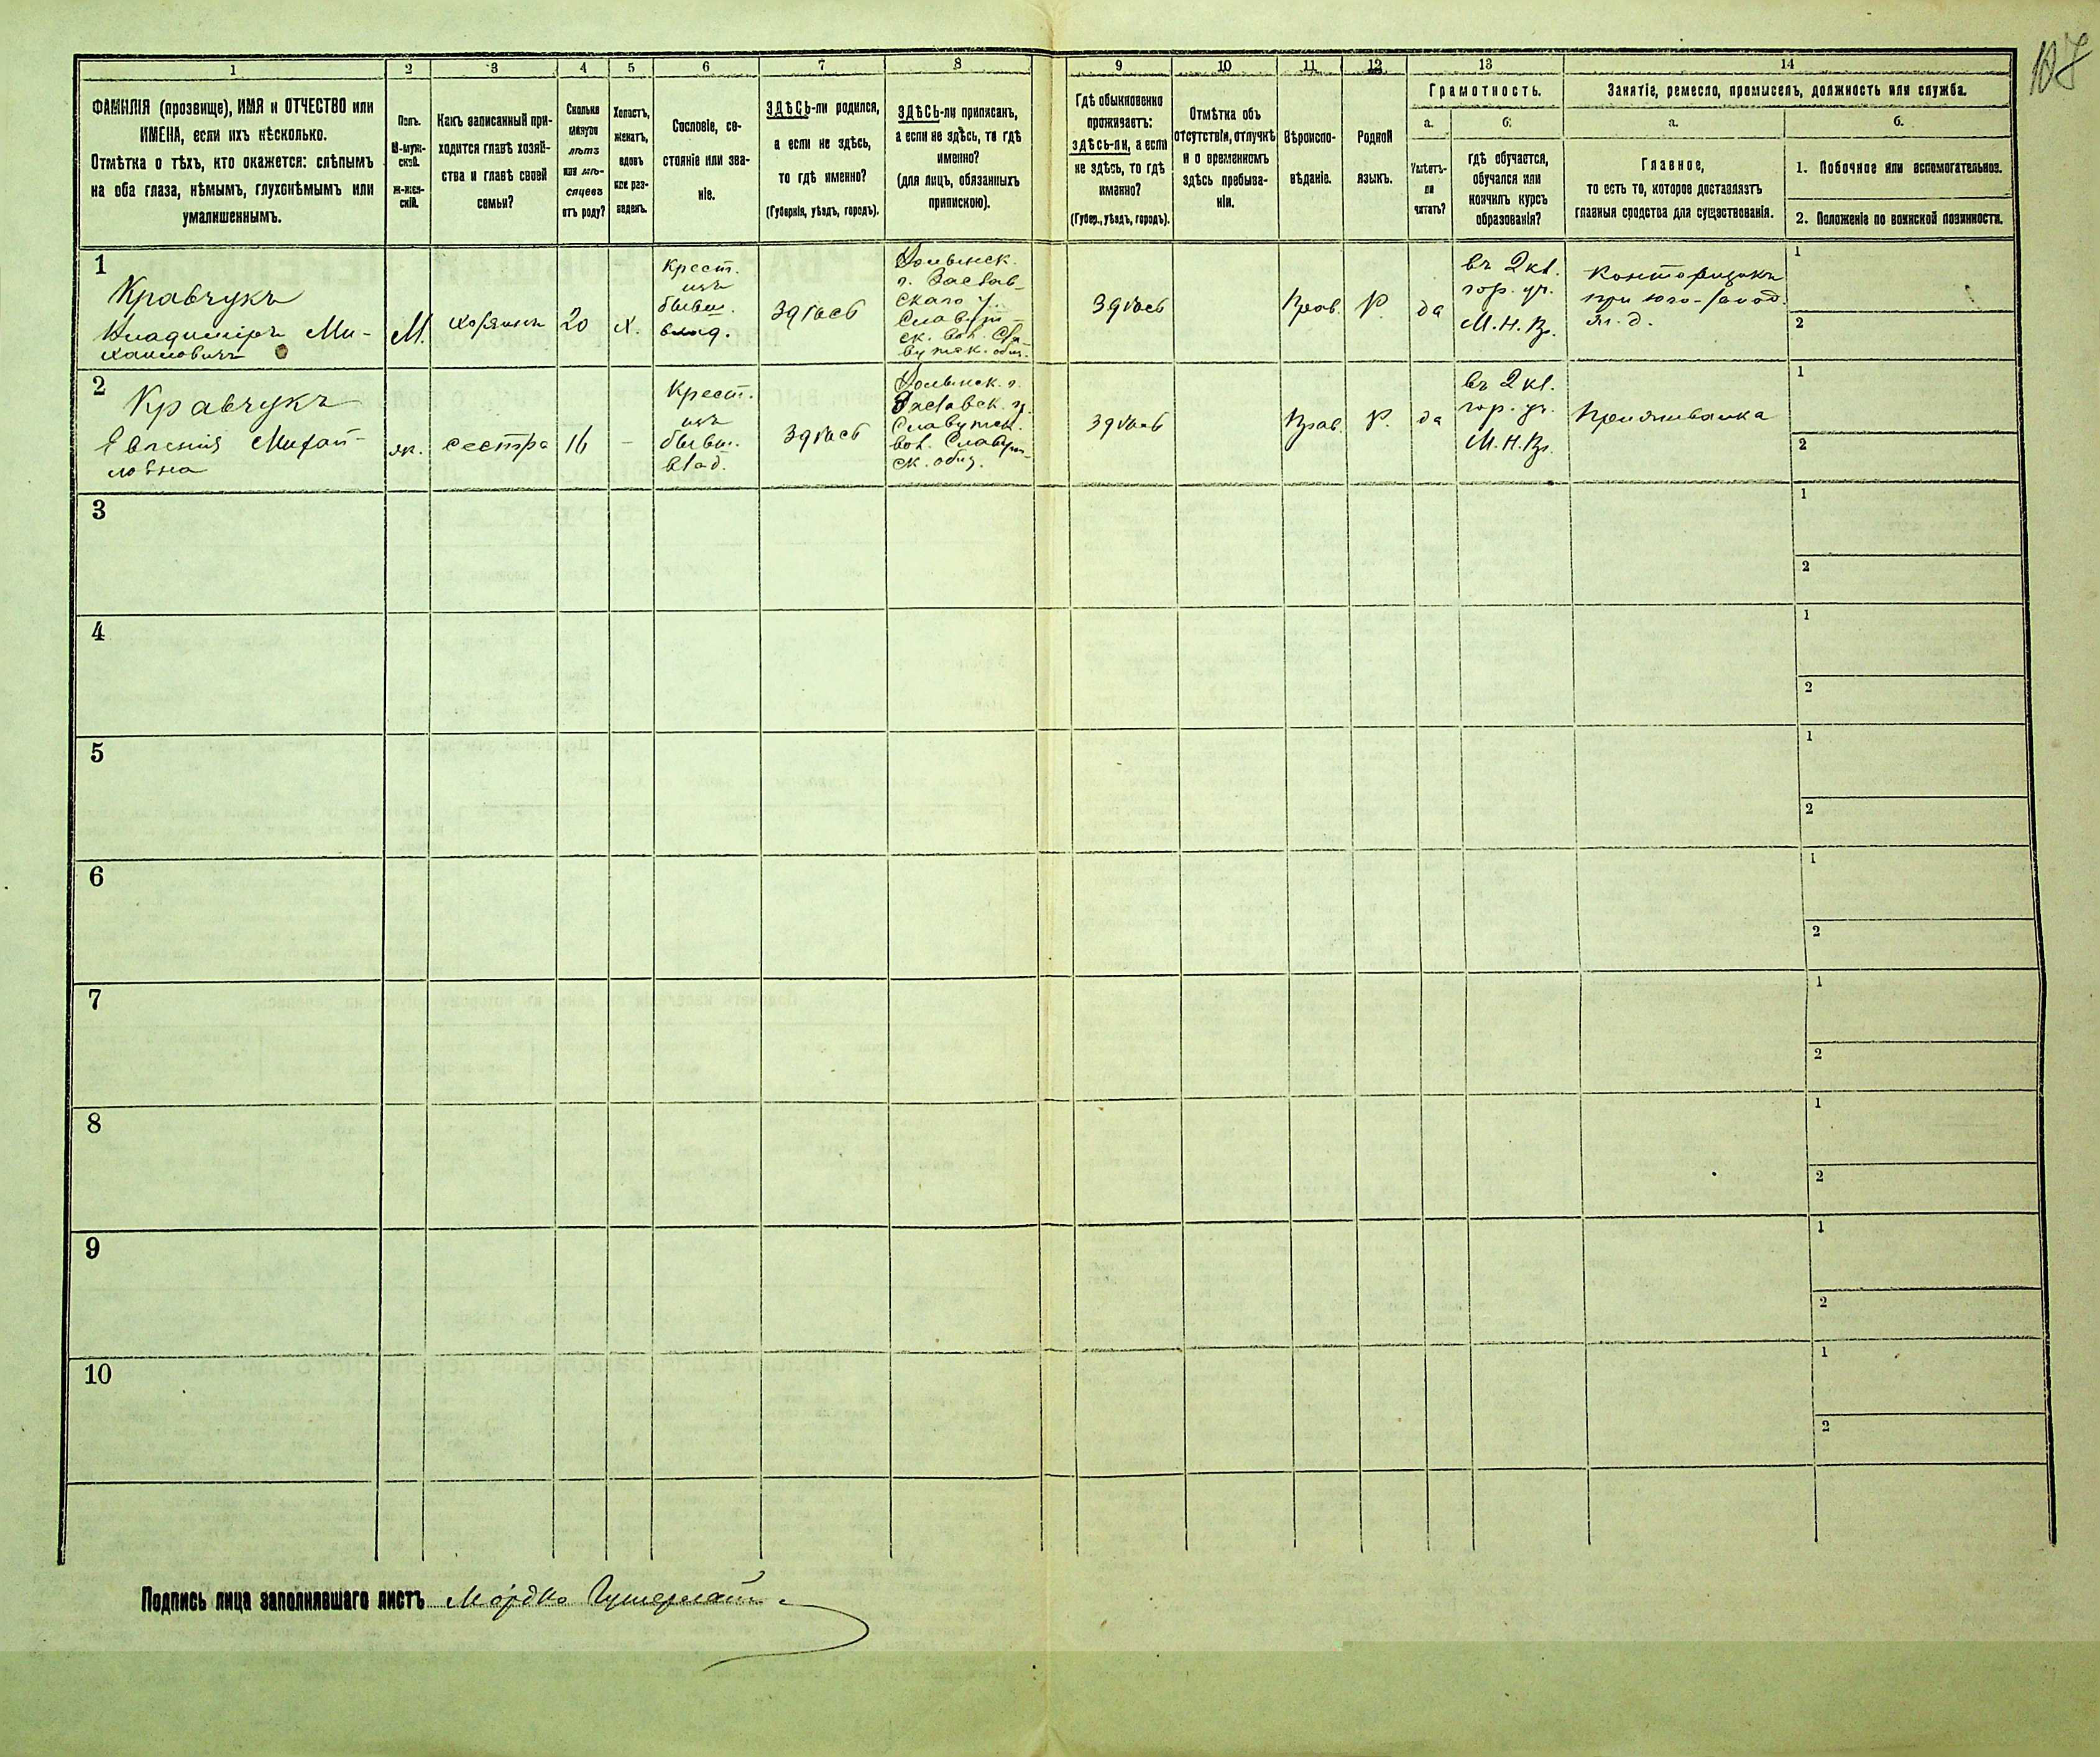 127
1 2 3 4 5 6 7 8 9 10 11 12 13 14
ФАМИЛІЯ (прозвище), ИМЯ и ОТЧЕСТВО или
ИМЕНА, если ихъ нѣсколько.
Отмѣтка о тѣхъ, кто окажется: слѣпымъ
на оба глаза, нѣмымъ, глухонѣмымъ или
умалишеннымъ.
Полъ.
М-муж-
ской.
Ж-жен-
скій.
Какъ записанный при-
ходится главѣ хозяй-
ства и главѣ своей
семьи?
Сколько
минуло
лѣтъ
или мѣ-
сяцевъ
отъ роду?
Холостъ,
женатъ,
вдовъ
или раз-
веденъ.
Сословіе, со-
стояніе или зва-
ніе.
ЗДѢСЬ-ли родился,
а если не здѣсь,
то гдѣ именно?
(Губернія, уѣздъ, городъ).
ЗДѢСЬ-ли приписанъ,
а если не здѣсь, то гдѣ
именно?
(для лицъ, обязанныхъ
припискою).
Гдѣ обыкновенно
проживаетъ:
здѣсь-ли, а если
не здѣсь, то гдѣ
именно?
(Губер., уѣздъ, городъ).
Отмѣтка объ
отсутствіи, отлучкѣ
и о временномъ
здѣсь пребыва-
ніи.
Вѣроиспо-
вѣданіе.
Родной
языкъ.
Грамотность.
а.
Умѣетъ-
ли
читать?
б.
гдѣ обучается,
обучался или
кончилъ курсъ
образованія?
Занятіе, ремесло, промыселъ, должность или служба.
а.
Главное,
то есть то, которое доставляетъ
главныя средства для существованія.
б.
1. Побочное или вспомогательное.
2. Положеніе по воинской повинности.
1
Кравчукъ
Владиміръ Ми-
хаиловичъ
М.
хозяинъ
20
х.
Крест.
изъ
бывш.
влад.
здѣсь
Волынск.
г. Заслав-
скаго у.
Славут-
ск. вол. Сла-
вутск. общ.
здѣсь
Прав.
Р.
да
въ 2 кл.
гор. уч.
М. Н. Пр.
Конторщикъ
при юго-запад.
ж. д.
1
2
2
Кравчукъ
Евгенія Михай-
ловна
ж.
сестра
16
-
Крест.
изъ
бывш.
влад.
здѣсь
Волынск. г.
Заславск. у.
Славутск.
вол. Славут-
ск. общ.
здѣсь
Прав.
Р.
да
въ 2 кл.
гор. уч.
М. Н. Пр.
1
2
3
1
2
4
1
2
5
1
2
6
1
2
7
1
2
8
1
2
9
1
2
10
1
2
Подпись лица заполнявшаго листъ Мордко